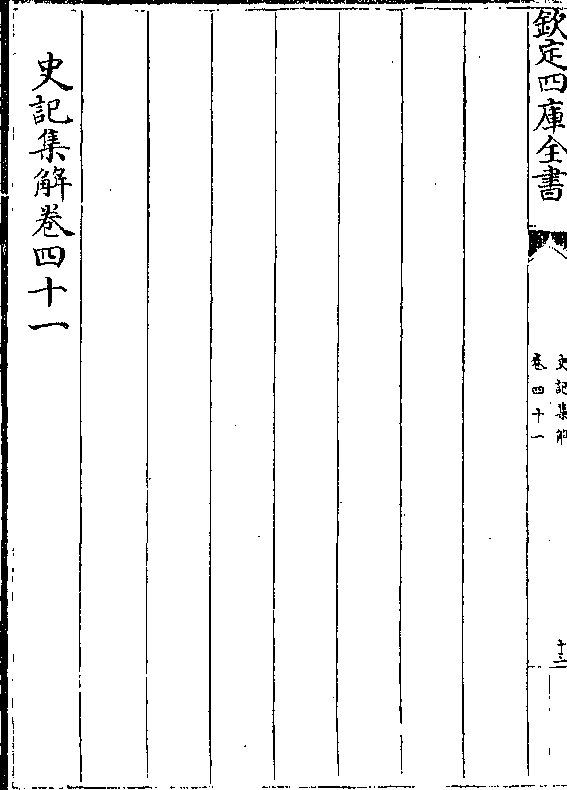 欽定四庫全書
史記集解
卷四十一
史記集解卷四十一